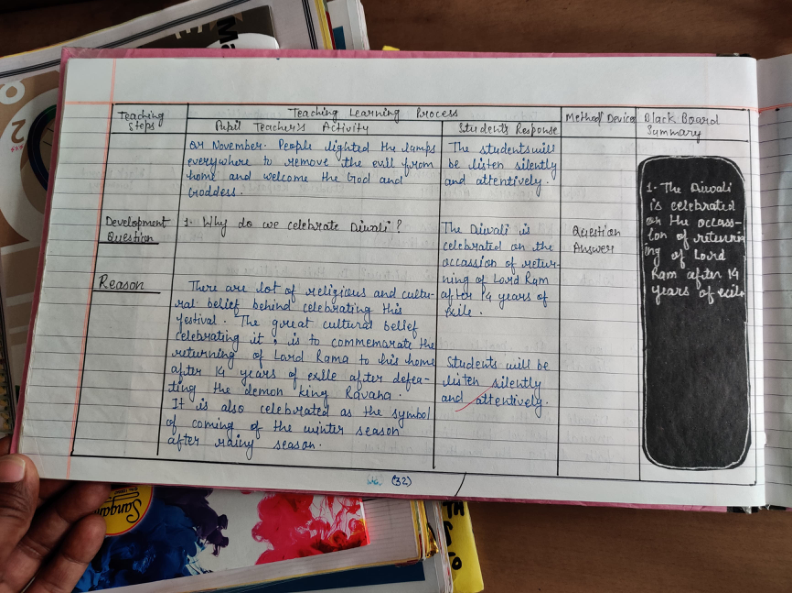 Teaching Steps
Teaching Learning Process
Pupil Teacher's Activity
Students Response
Method/Device
Black Board Summary
or November. People lighted the lamps
everywhere to remove the evil from
home and welcome the God and
Goddess.
The students will
be listen silently
and attentively.
Development
Question
1. Why do we celebrate Diwali?
The Diwali is
celebrated on the
occassion of retur-
ning of Lord Ram
after 14 years of
Exile.
Question
Answer
1. The Diwali
is celebrated
on the occass-
ion of returni
ng of Lord
Ram after 14
years of exile
Reason
There are lot of religious and cultu-
ral belief behind celebrating this
festival. The great cultural belief
celebrating it is to commemarate the
returning of Lord Rama to his home
after 14 years of exile after defea-
ting the demon king Ravana.
It is also celebrated as the symbol
of coming of the winter season
after rainy season.
Students will be
listen silently
and attentively.
(32)
Sangam